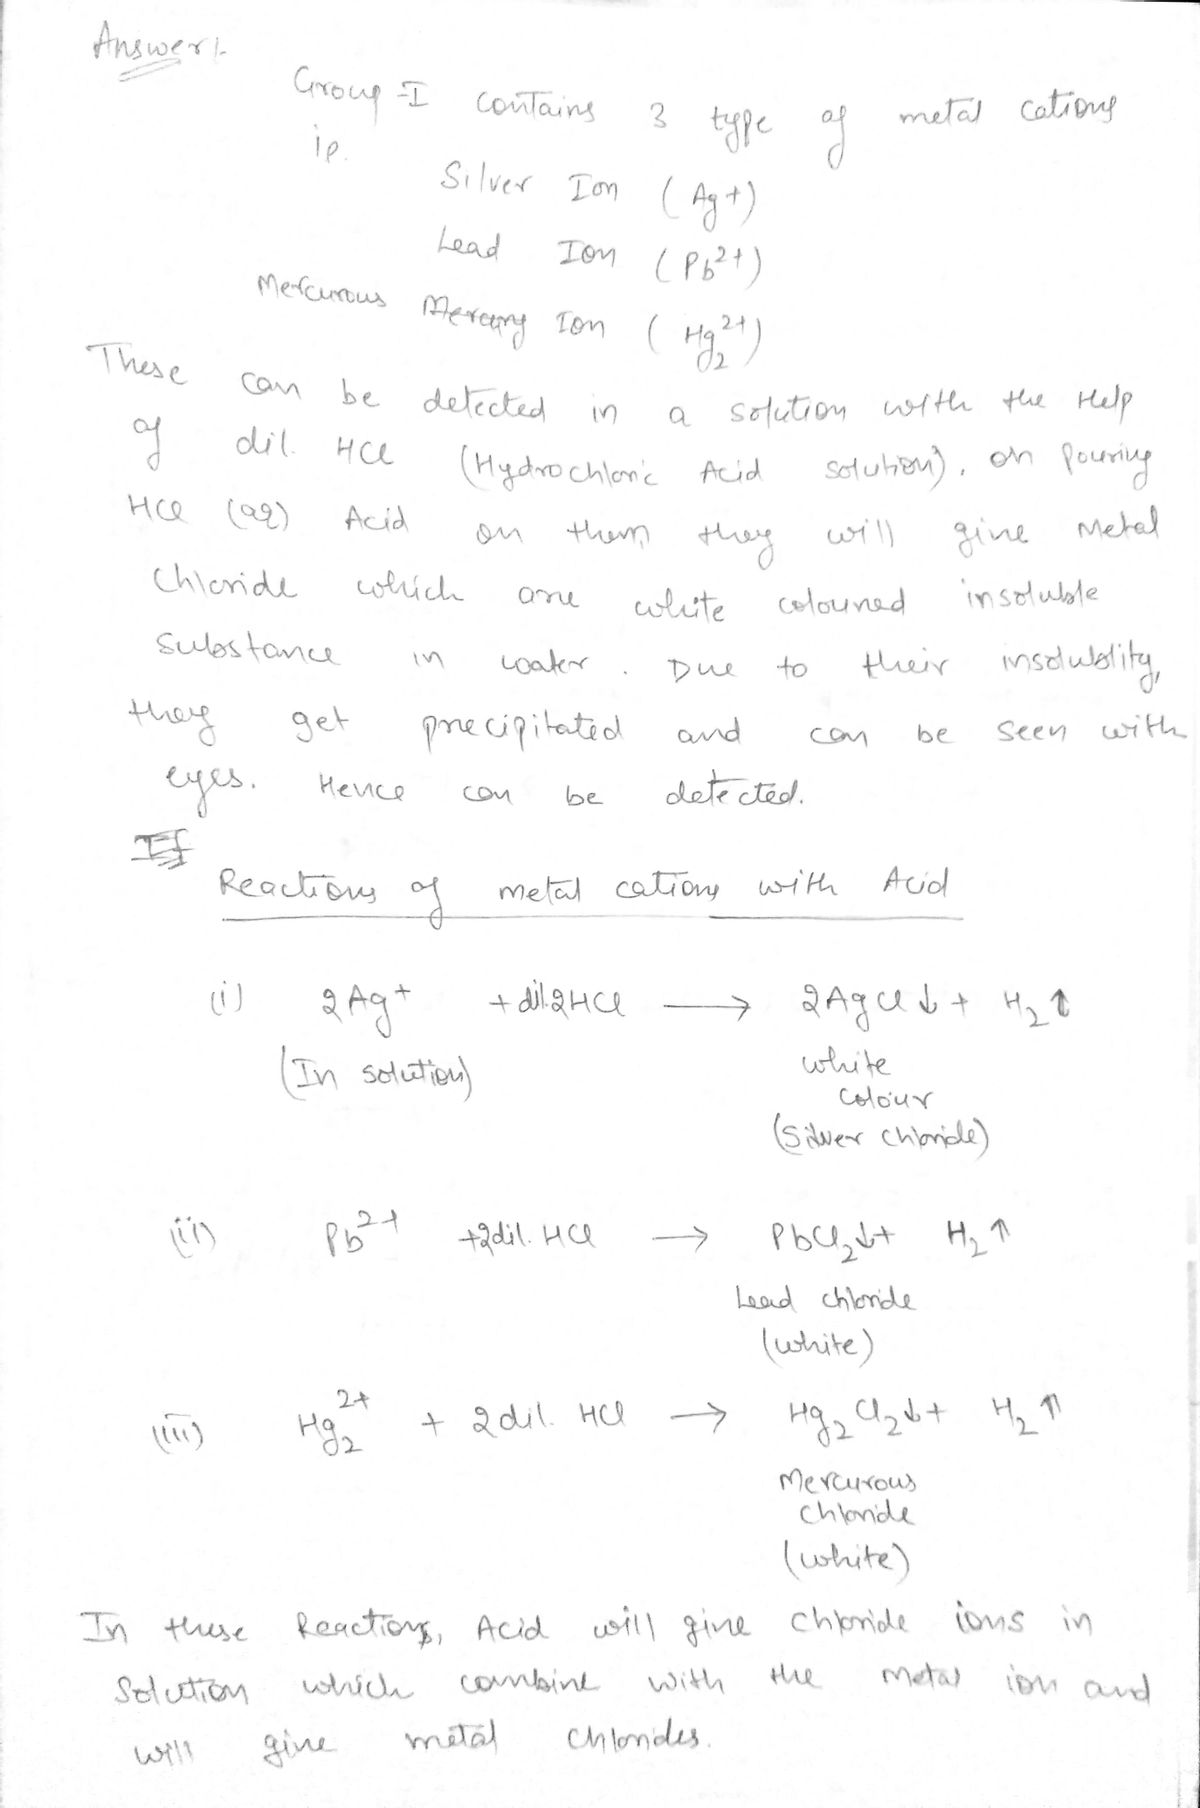 Answer:-
Group-I contains 3 type of metal cations
ie.
Silver Ion (Ag+)
Lead Ion (Pb²⁺)
Mercurous Mercury Ion (Hg₂²⁺)
These can be detected in a solution with the Help
of dil. HCl (Hydrochloric Acid solution). on pouring
HCl (aq) Acid on them they will give Metal
Chloride which are white coloured insoluble
substance in water. Due to their insolublity,
they get precipitated and can be seen with
eyes. Hence can be detected.
Reactions of metal cations with Acid
(i) 2Ag⁺ + dil. 2HCl ⟶ 2AgCl↓ + H₂↑
(In solution) white
colour
(Silver chloride)
(ii) Pb²⁺ + 2dil. HCl ⟶ PbCl₂↓ + H₂↑
Lead chloride
(white)
(iii) Hg₂²⁺ + 2dil. HCl ⟶ Hg₂Cl₂↓ + H₂↑
Mercurous
chloride
(white)
In these Reactions, Acid will give chloride ions in
solution which combine with the metal ion and
will give metal chlorides.